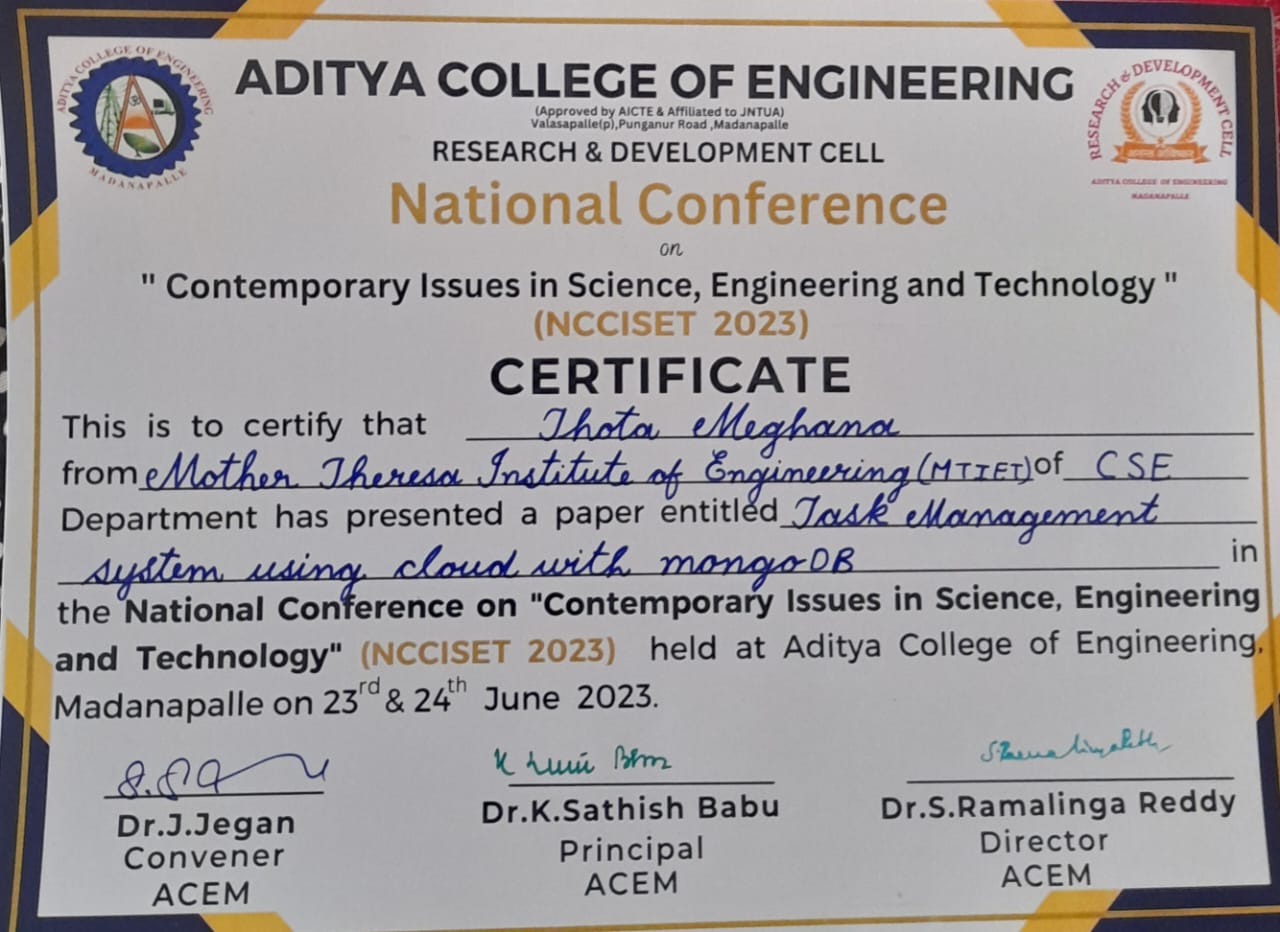 ADITYA COLLEGE OF ENGINEERING
MADANAPALLE
ADITYA COLLEGE OF ENGINEERING
(Approved by AICTE & Affiliated to JNTUA)
Valasapalle(p),Punganur Road ,Madanapalle
RESEARCH & DEVELOPMENT CELL
RESEARCH & DEVELOPMENT CELL
ADITYA COLLEGE OF ENGINEERING
MADANAPALLE
National Conference
on
" Contemporary Issues in Science, Engineering and Technology "
(NCCISET 2023)
CERTIFICATE
This is to certify that Thota Meghana
from Mother Theresa Institute of Engineering (MTIET) of CSE
Department has presented a paper entitled Task Management
system using cloud with mongoDB in
the National Conference on "Contemporary Issues in Science, Engineering
and Technology" (NCCISET 2023) held at Aditya College of Engineering,
Madanapalle on 23rd & 24th June 2023.
Dr.J.Jegan
Convener
ACEM
Dr.K.Sathish Babu
Principal
ACEM
Dr.S.Ramalinga Reddy
Director
ACEM